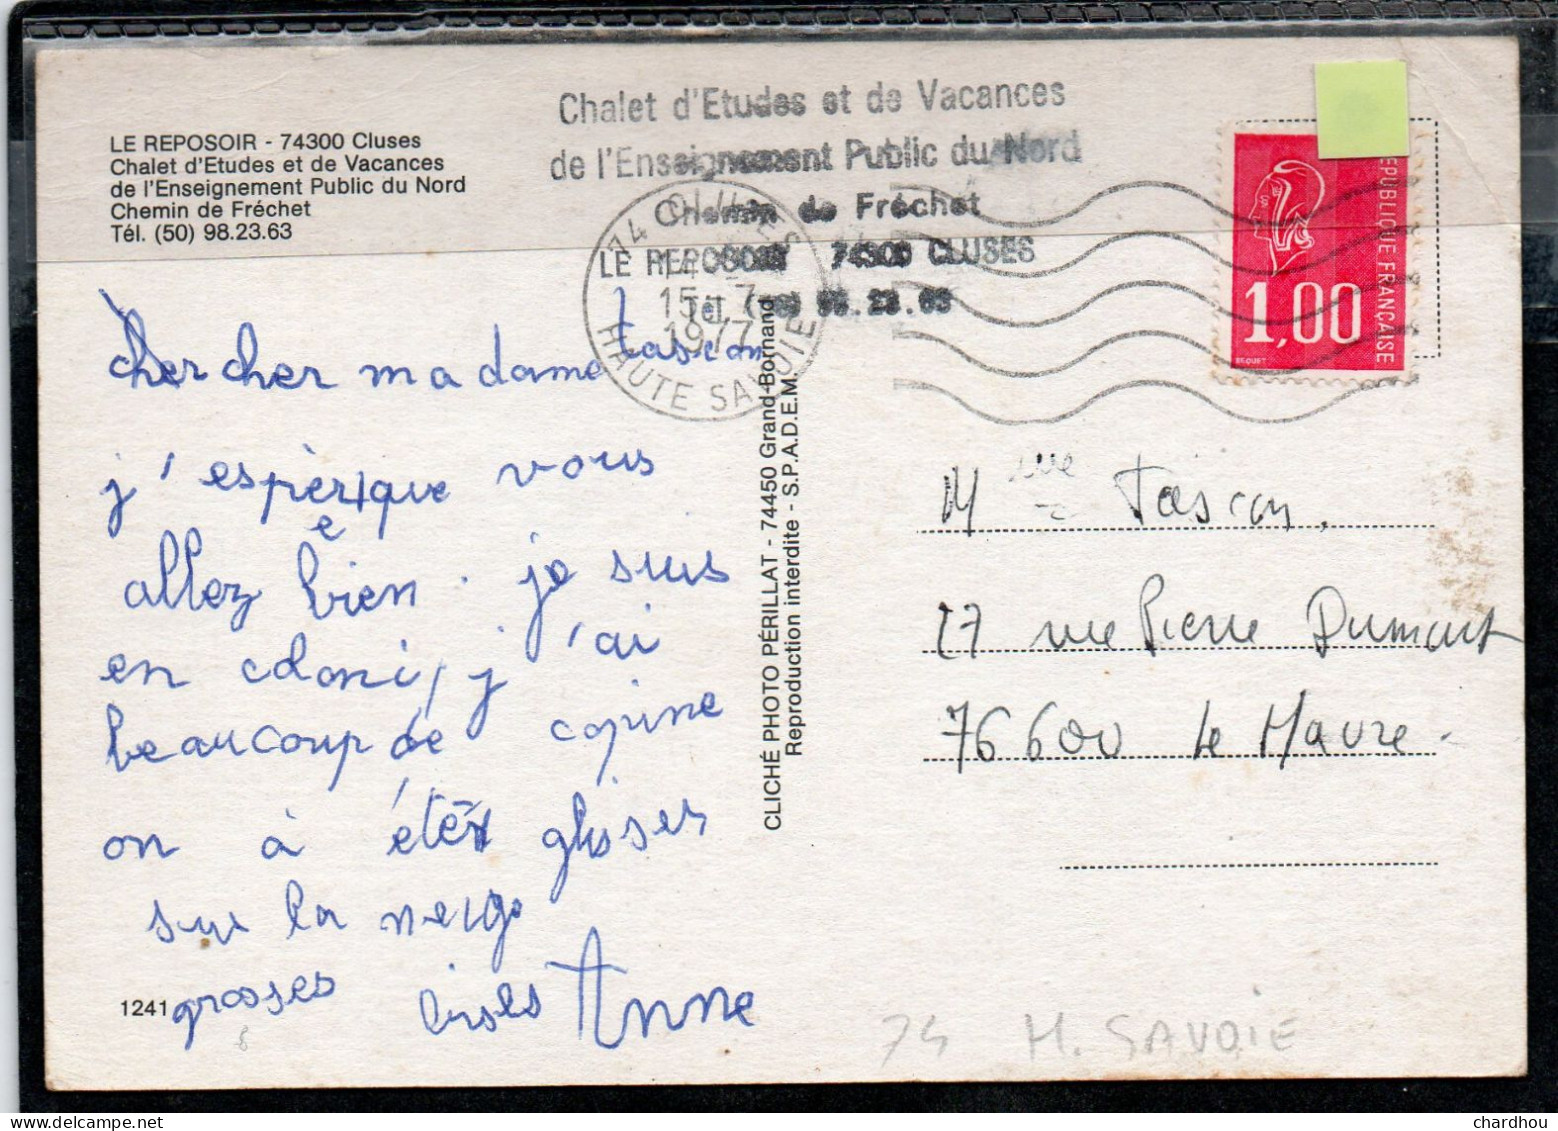 Chalet d'Etudes et de Vacances
de l'Enseignement Public du Nord
Chemin de Fréchet
LE REPOSOIR 74300 CLUSES
Tél. (50) 98.23.63
LE REPOSOIR - 74300 Cluses
Chalet d'Etudes et de Vacances
de l'Enseignement Public du Nord
Chemin de Fréchet
Tél. (50) 98.23.63
74 CLUSES
15-7
1977
HAUTE SAVOIE
REPUBLIQUE FRANÇAISE
1,00
BEQUET
chercher madame tascon
j'espèrque vous
e
allez bien. je suis
en coloni, j'ai
beaucoup de copine
on à été glisser
sur la neige
grosses bises Anne
1241
CLICHÉ PHOTO PÉRILLAT - 74450 Grand-Bornand
Reproduction interdite - S.P.A.D.E.M.
Mme Tascon.
27 rue Pierre Dumont
76600 Le Havre.
74 H. SAVOIE
chardhou